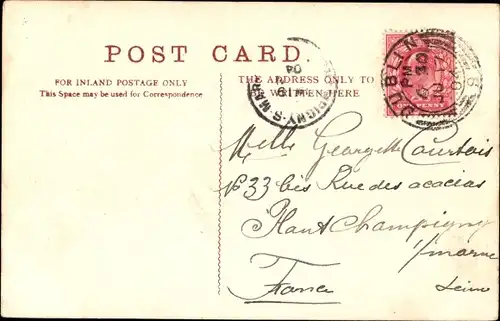 POST CARD.
FOR INLAND POSTAGE ONLY
This Space may be used for Correspondence
THE ADDRESS ONLY TO
BE WRITTEN HERE
DUBLIN
PM
04
PIGNY-S-MAR
Melle Georgette Courtois
No 33 bis Rue des acacias
Plant Champigny
s/marne
Seine
France